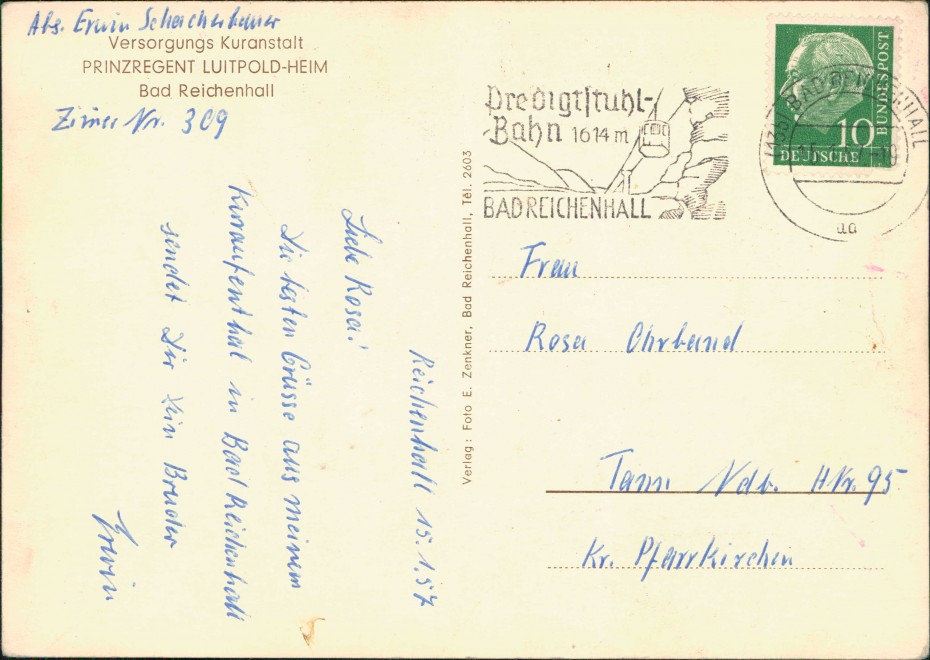 Abs. Erwin
Versorgungs Kuranstalt
PRINZREGENT LUITPOLD-HEIM
Bad Reichenhall
Zimer Nr. 309
Reichenhall 15.1.57
Liebe Rosa!
Die besten Grüsse aus meinem
Kuraufenthal in Bad Reichenhall
sendet Dir Dein Bruder
Erwin
Verlag: Foto E. Zenkner, Bad Reichenhall, Tel. 2603
Predigtstuhl-
Bahn 1614 m
BAD REICHENHALL
BAD REICHENHALL
aa
10
DEUTSCHE
BUNDESPOST
Frau
Rosa Ohrband
Tann Ndb. HNr. 95
Kr. Pfarrkirchen